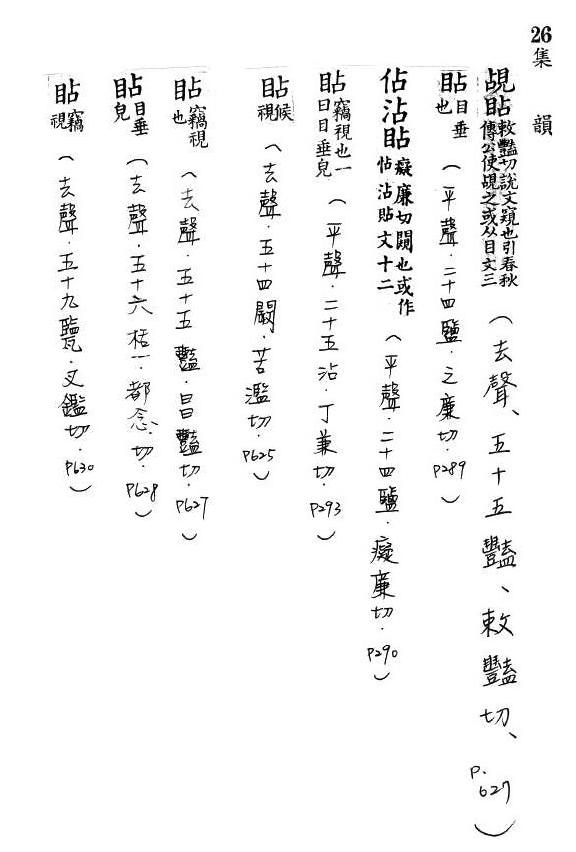 26集 韻
覘䀡敕豔切說文窺也引春秋傳公使覘之或从目文三(去聲、五十五豔、敕豔切、P.627)
䀡目垂也(平聲.二十四鹽.之廉切.P289)
佔沾䀡癡廉切闚也或作佔沾貼文十二(平聲.二十四鹽.癡廉切.P290)
䀡竊視也一曰目垂皃(平聲.二十五沾.丁兼切.P293)
䀡候視(去聲.五十四闞.苦濫切.P625)
䀡竊視也(去聲.五十五豔.昌豔切.P627)
䀡目垂皃(去聲.五十六㮇.都念切.P628)
䀡竊視(去聲.五十九鑑.叉鑑切.P630)